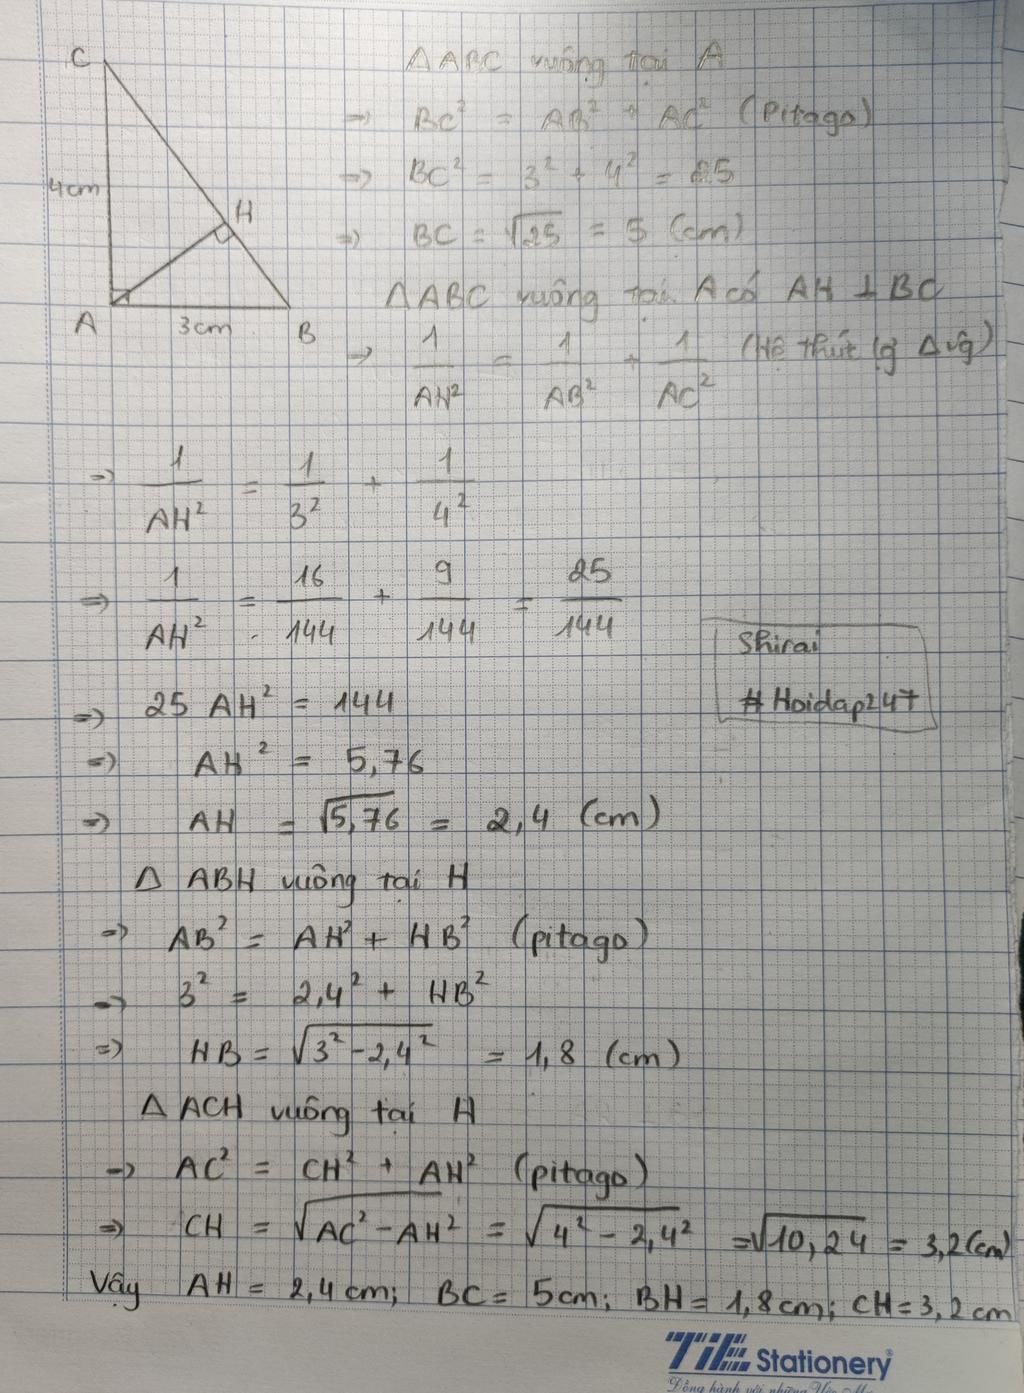 C
4cm
H
A
3cm
B
ΔABC vuông tại A
=> BC² = AB² + AC² (Pitago)
=> BC² = 3² + 4² = 25
=> BC = √25 = 5 (cm)
ΔABC vuông tại A có AH ⊥ BC
=> 1/AH² = 1/AB² + 1/AC² (Hệ thức lg Δvg)
=> 1/AH² = 1/3² + 1/4²
=> 1/AH² = 16/144 + 9/144 = 25/144
Shirai
#Hoidap247
=> 25 AH² = 144
=> AH² = 5,76
=> AH = √5,76 = 2,4 (cm)
Δ ABH vuông tại H
=> AB² = AH² + HB² (pitago)
=> 3² = 2,4² + HB²
=> HB = √3² - 2,4² = 1,8 (cm)
Δ ACH vuông tại H
=> AC² = CH² + AH² (pitago)
=> CH = √AC² - AH² = √4² - 2,4² = √10,24 = 3,2 (cm)
Vậy AH = 2,4 cm; BC = 5cm; BH = 1,8 cm; CH = 3,2 cm
TiE Stationery
Đồng hành với những